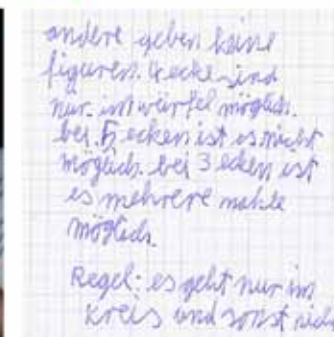 andere geben keine
figuren. 4 ecke sind
nur im würfel möglich.
bei 5 ecken ist es nicht
möglich. bei 3 ecken ist
es mehrere mahle
möglich.
Regel: es geht nur im
kreis und sonst nich